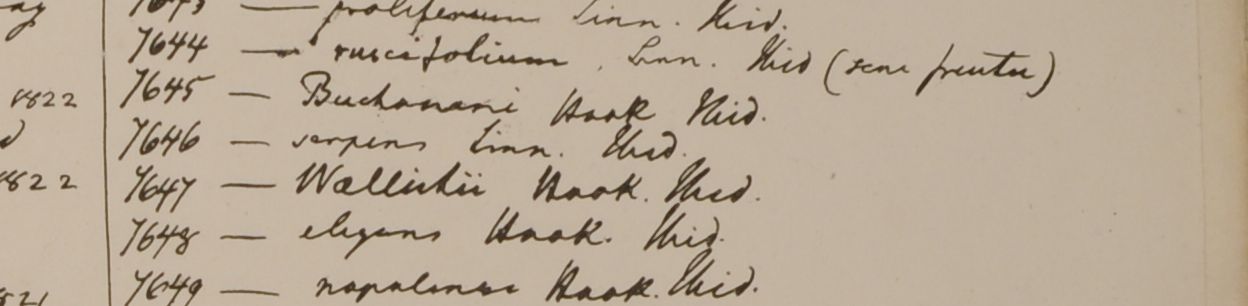 7643 — proliferum Linn. Ibid.
7644 — ruscifolium. Linn. Ibid (sene fructu)
1822 7645 — Buchanani Hook Ibid.
7646 — serpens Linn. Ibid.
1822 7647 — Wallichii Hook. Ibid.
7648 — elegans Hook. Ibid.
1821 7649 — napalense Hook. Ibid.